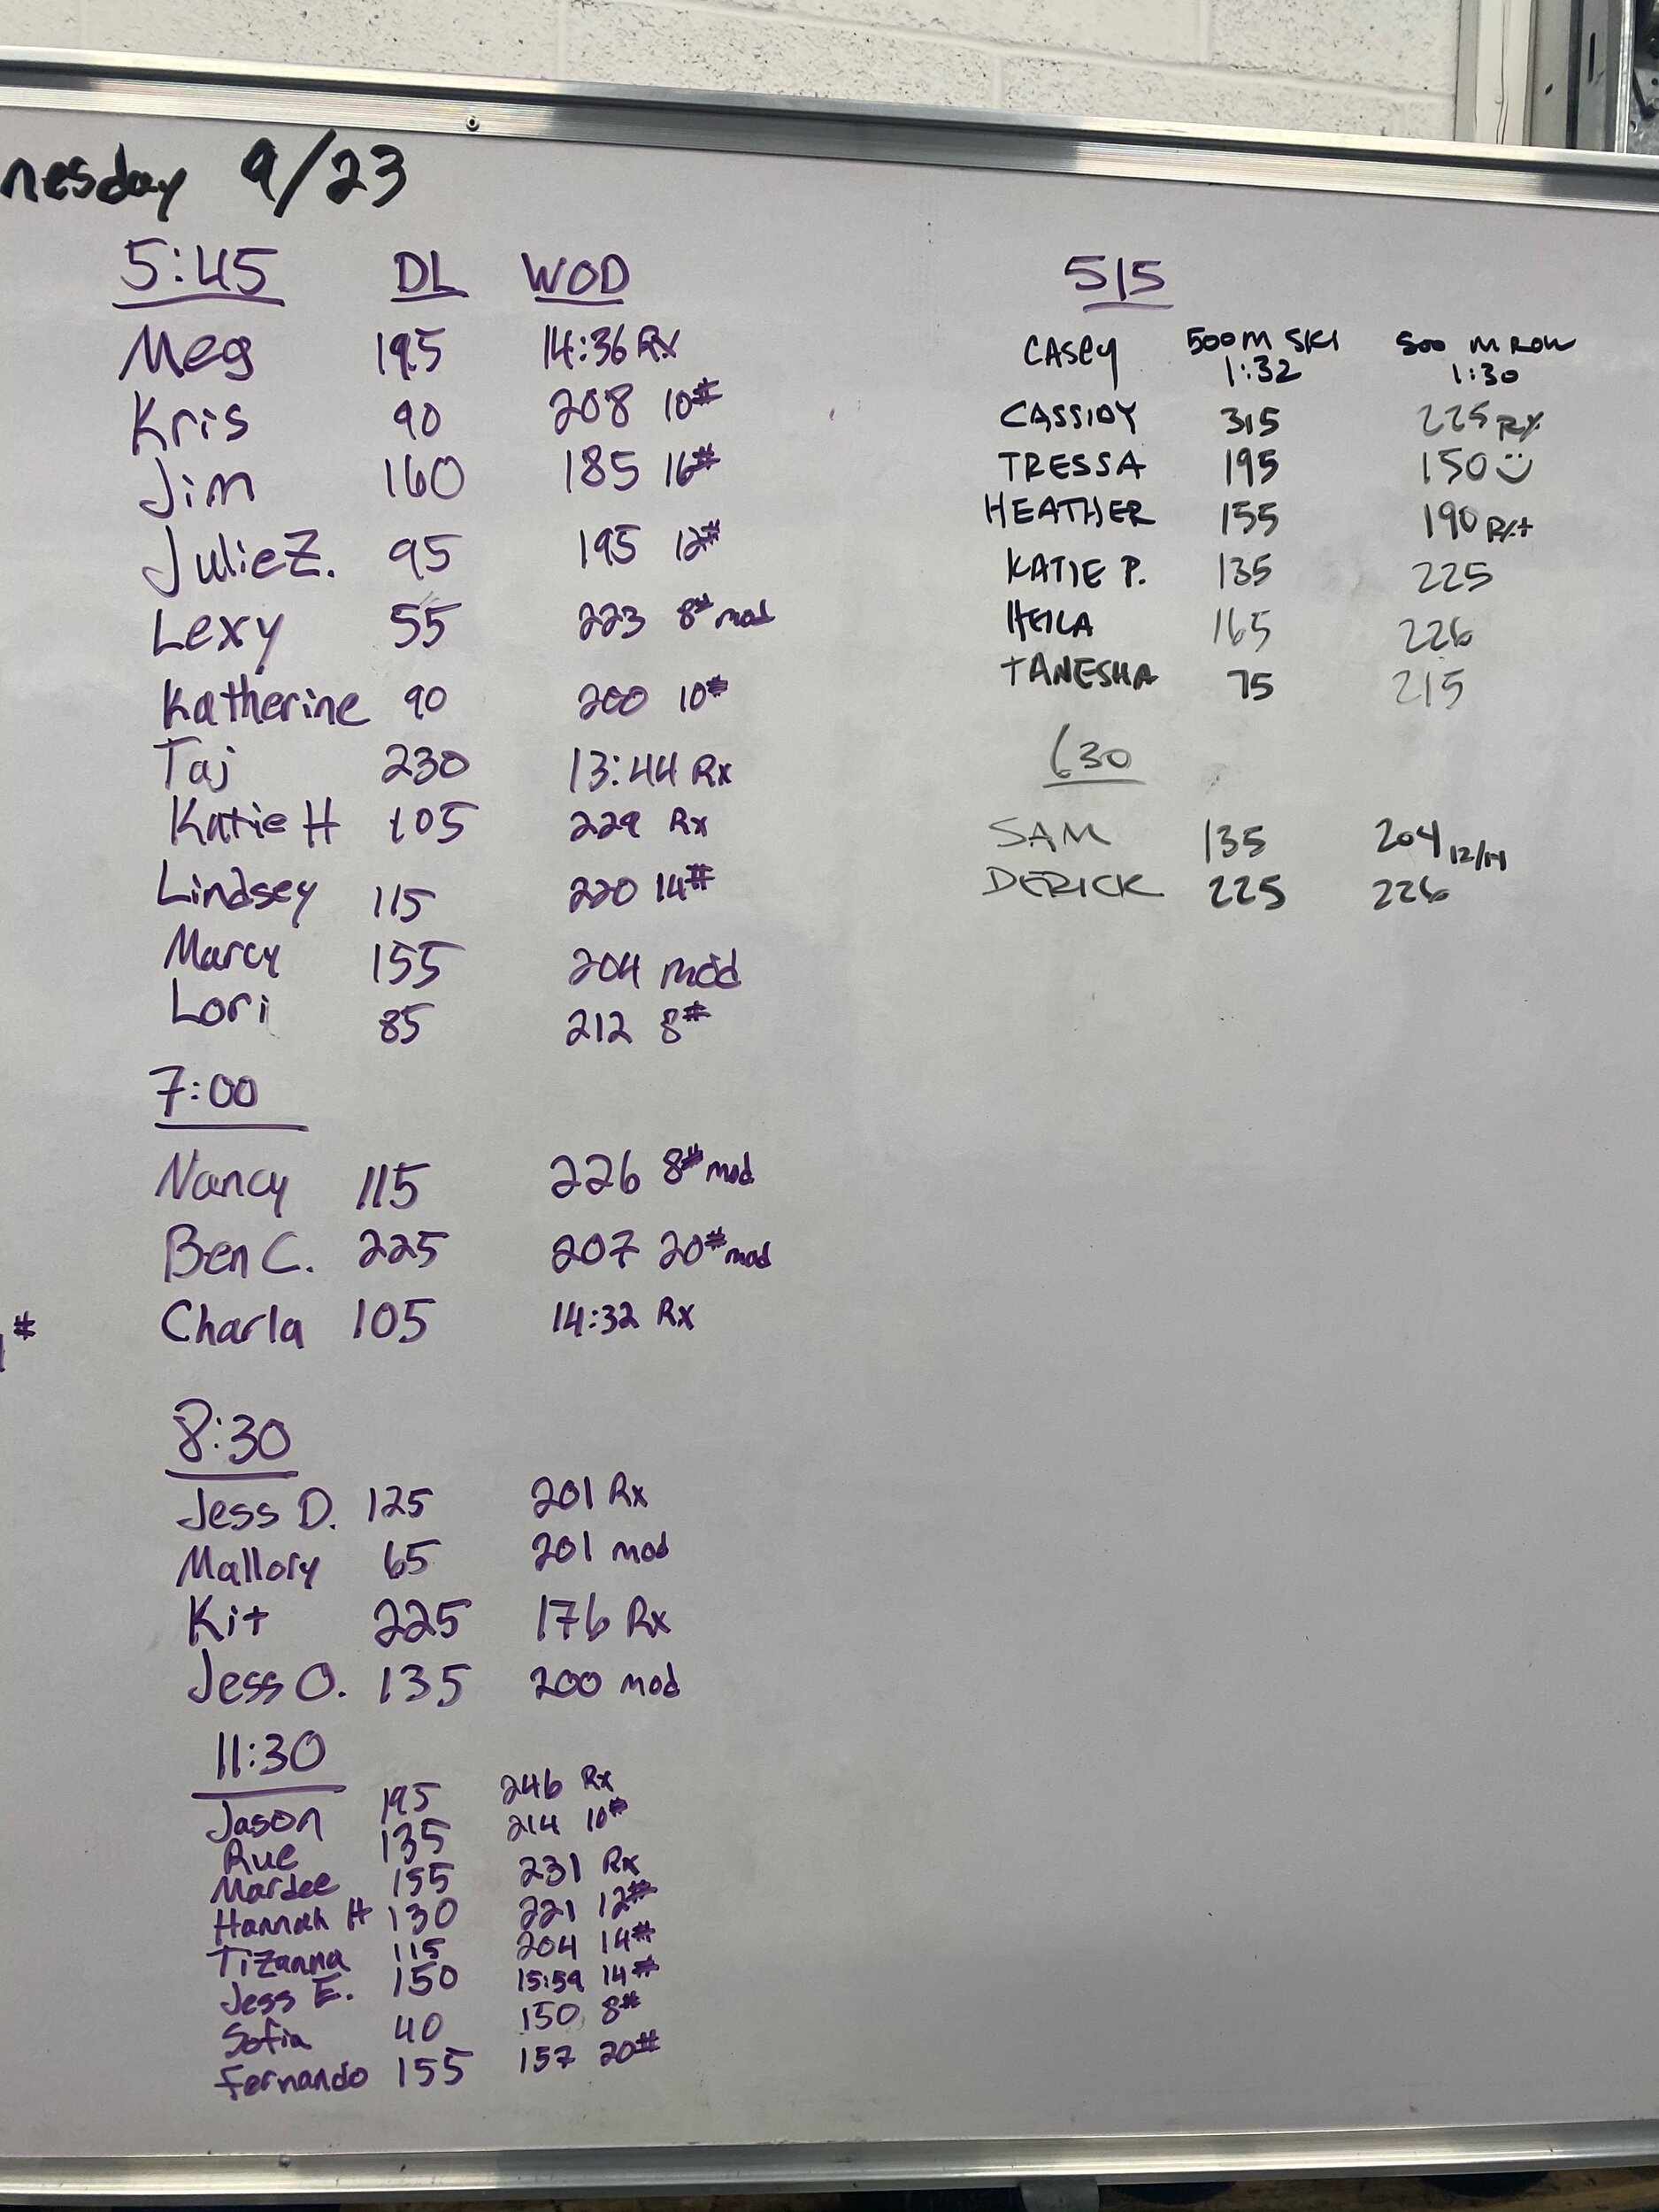 nesday 9/23
5:45 DL WOD
Meg 195 14:36 Rx
Kris 90 208 10#
Jim 160 185 16#
Julie Z. 95 195 12#
Lexy 55 223 8# mod
Katherine 90 200 10#
Taj 230 13:44 Rx
Katie H 105 229 Rx
Lindsey 115 220 14#
Marcy 155 204 mod
Lori 85 212 8#
7:00
Nancy 115 226 8# mod
Ben C. 225 207 20# mod
# Charla 105 14:32 Rx
8:30
Jess D. 125 201 Rx
Mallory 65 201 mod
Kit 225 176 Rx
Jess O. 135 200 mod
11:30
Jason 195 246 Rx
Rue 135 214 10#
Mardee 155 231 Rx
Hannah H 130 221 12#
Tizanna 115 204 14#
Jess E. 150 15:59 14#
Sofia 40 150 8#
Fernando 155 157 20#
515
CASEY 500M SKI 500 M ROW
1:32 1:30
CASSIDY 315 225 RX
TRESSA 195 150
HEATHER 155 190 RX+
KATIE P. 135 225
HEILA 165 226
TANESHA 75 215
630
SAM 135 204 12/14
DERICK 225 226